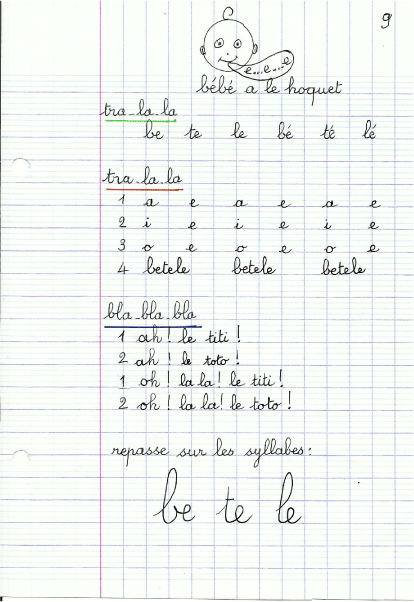 9
e...e...e
bébé a le hoquet
tra-la-la
be te le bé té lé
tra-la-la
1 a e a e a e
2 i e i e i e
3 o e o e o e
4 betele betele betele
bla-bla-bla
1 ah! le titi!
2 ah! le toto!
1 oh! la la! le titi!
2 oh! la la! le toto!
repasse sur les syllabes:
be te le